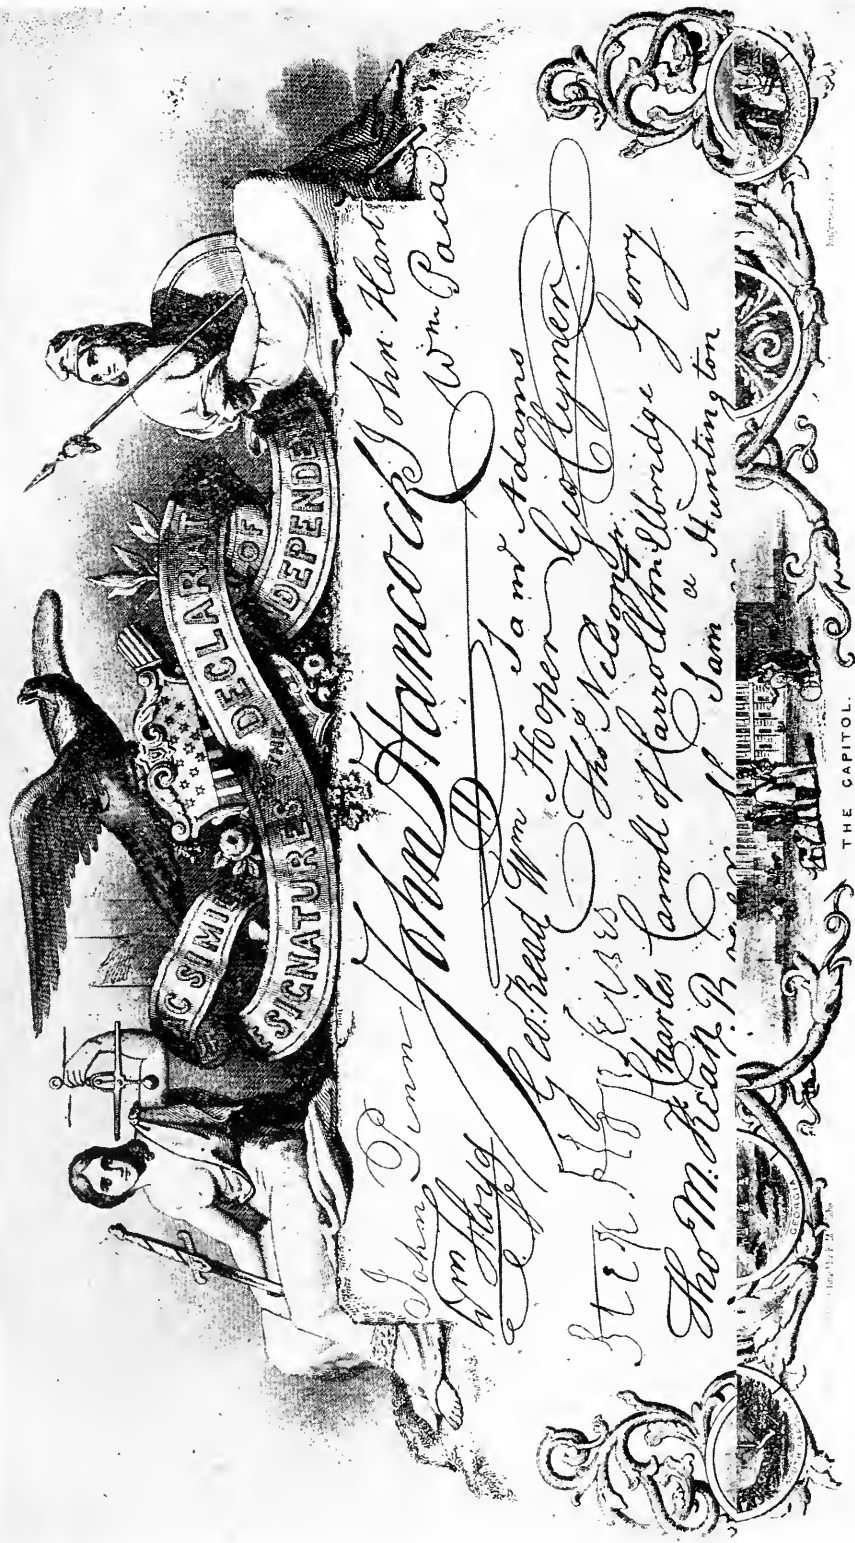 FAC SIMILE
OF THE
SIGNATURES
DECLARAT
OF
INDEPENDE
John Penn
John Hancock
John Hart
Wm Floyd
Wm. Paca
Geo. Read
Wm Hooper
Sam Adams
Geo Clymer
Step. Hopkins
Thos Nelson jr.
Charles Carroll of Carrollton
Elbridge Gerry
Tho M. Kean
Sam el Huntington
GEORGIA
NORTH CAROLINA
THE CAPITOL.